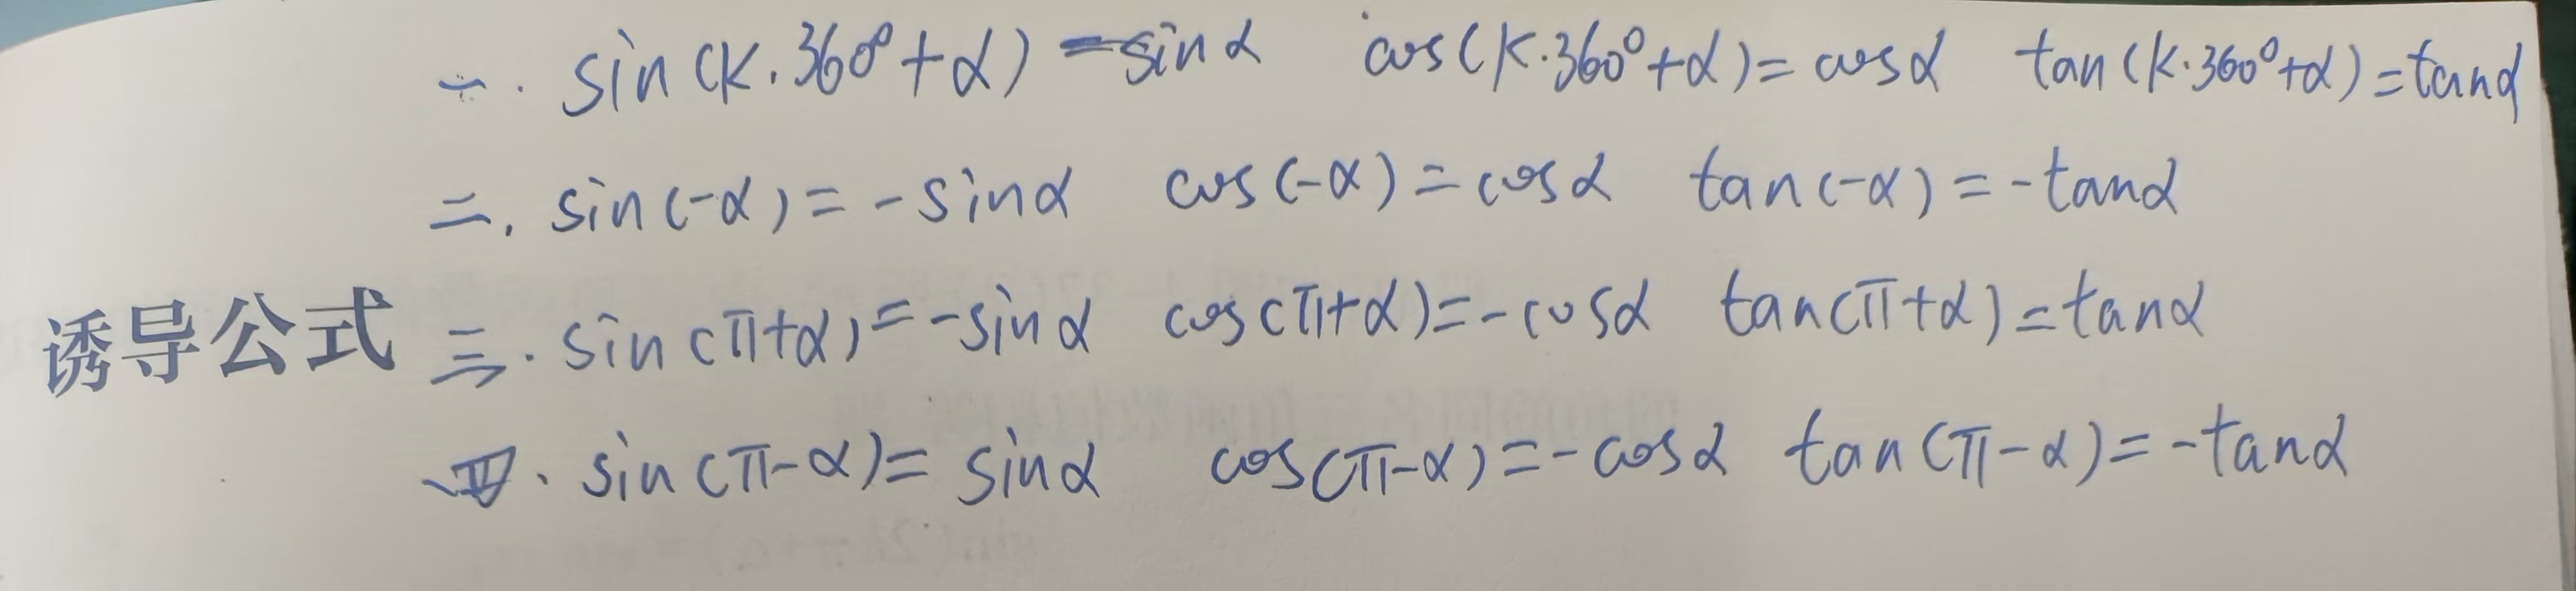 一. sin(k·360°+α)=sinα cos(k·360°+α)=cosα tan(k·360°+α)=tanα
二. sin(-α)=-sinα cos(-α)=cosα tan(-α)=-tanα
诱导公式 三. sin(π+α)=-sinα cos(π+α)=-cosα tan(π+α)=tanα
四. sin(π-α)=sinα cos(π-α)=-cosα tan(π-α)=-tanα